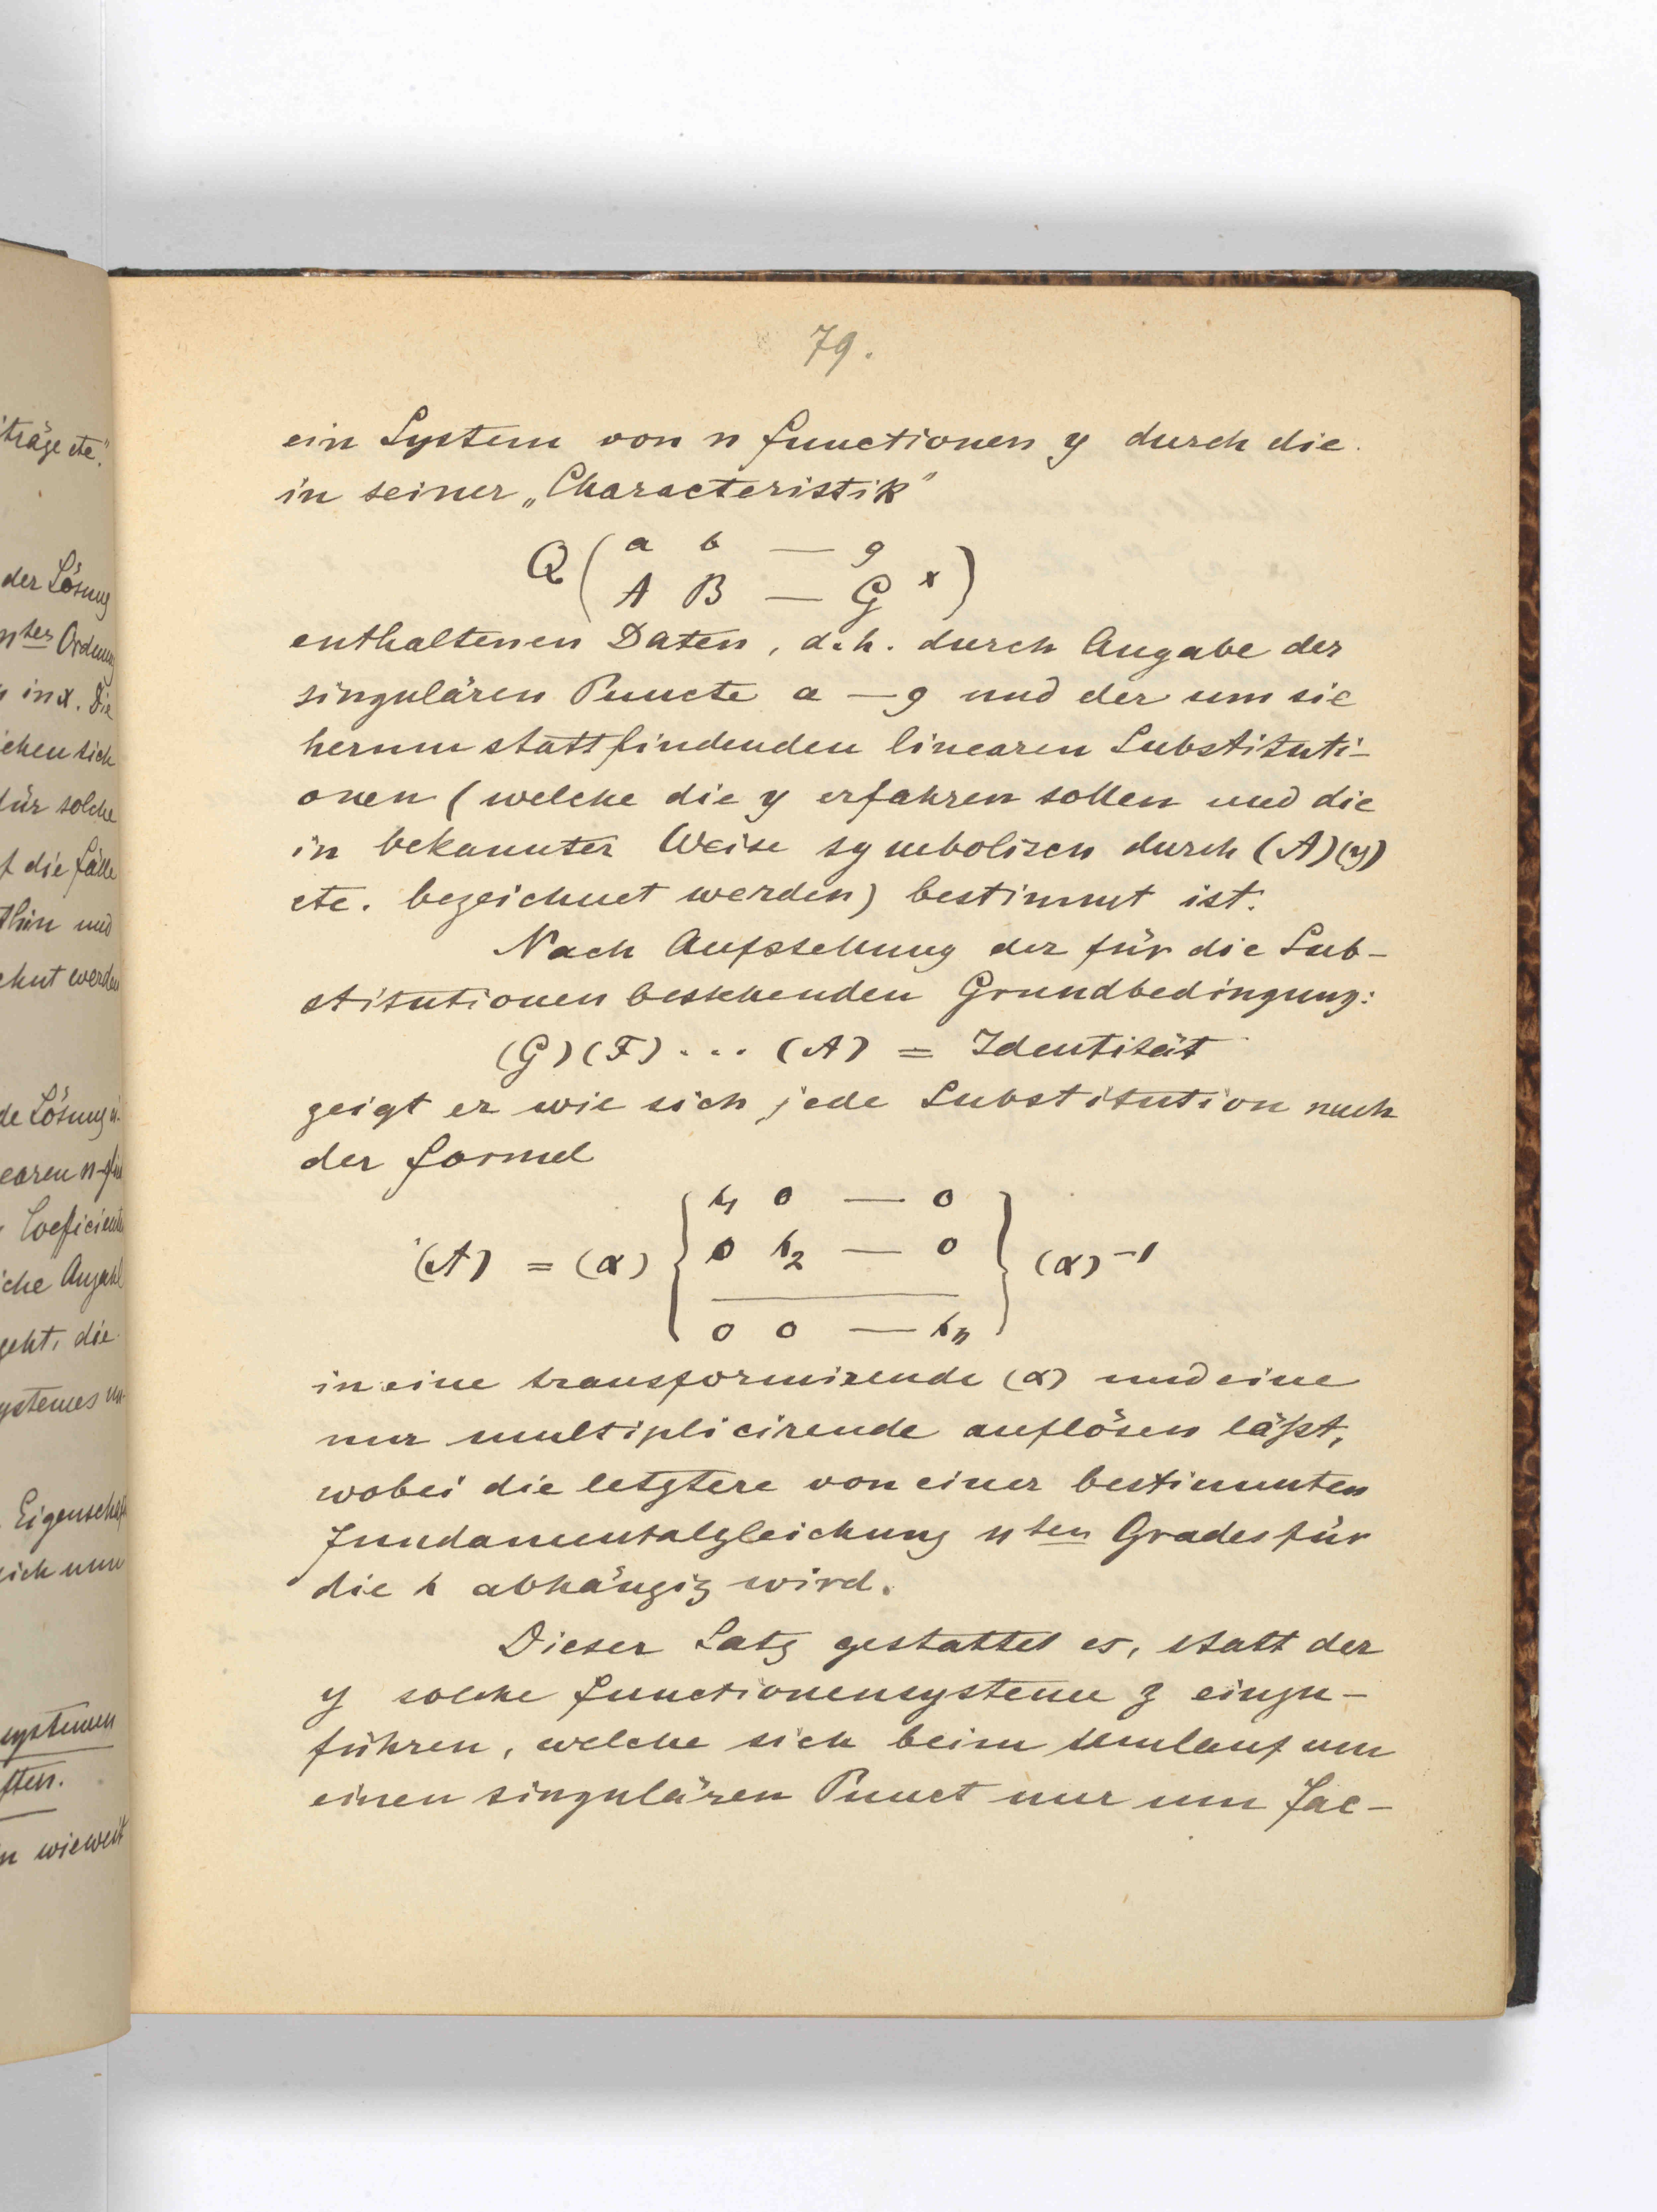 träge etc."
der Lösung
nter Ordnung
in x. Die
chen sich
für solche
die Fälle
thin und
chnt werden
de Lösung
earen
Coefficienten
che Anzahl
geht, die
ystemes
Eigenschaft
sich nun
systemen
ften.
wieweit
79.
ein System von n Functionen y durch die
in seiner „Characteristik"
Q ( a b — g
A B — G x )
enthaltenen Daten, d.h. durch Angabe der
singulären Puncte a — g und der um sie
herum stattfindenden linearen Substituti-
onen (welche die y erfahren sollen und die
in bekannter Weise symbolisch durch (A)(y)
etc. bezeichnet werden) bestimmt ist.
Nach Aufstellung der für die Sub-
stitutionen bestehenden Grundbedingung:
(G)(F) ... (A) = Identität
zeigt er wie sich jede Substitution nach
der Formel
(A) = (α) { s₁ 0 — 0
0 s₂ — 0
0 0 — sₙ } (α)⁻¹
in eine transformirende (α) und eine
nur multiplicirende auflösen läßt,
wobei die letztere von einer bestimmten
Fundamentalgleichung nten Grades für
die s abhängig wird.
Dieser Satz gestattet es, statt der
y solche Functionensysteme z einzu-
führen, welche sich beim Umlauf um
einen singulären Punct nur um Fac-